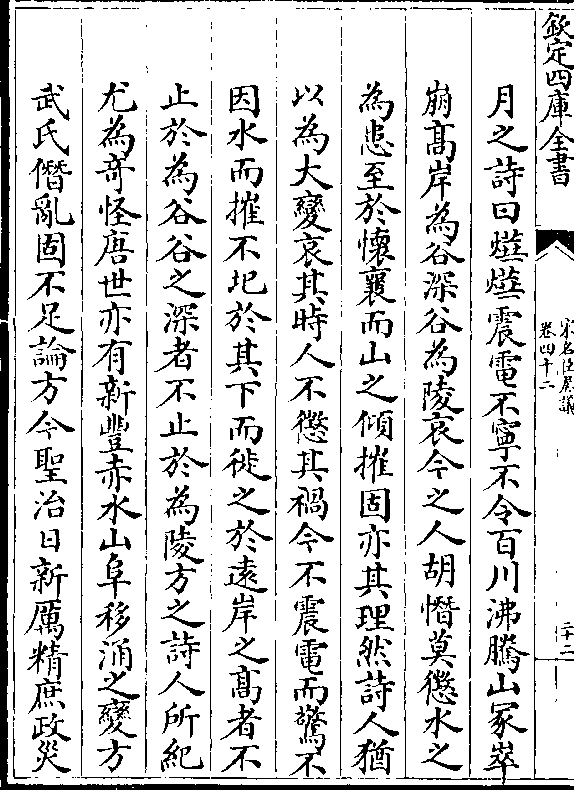 欽定四庫全書
宋名臣奏議
卷四十二
二十二
月之詩曰爗爗震電不寧不令百川沸騰山冢崒
崩髙岸為谷深谷為陵哀今之人胡憯莫懲水之
為患至於懐襄而山之傾摧固亦其理然詩人猶
以為大變哀其時人不懲其禍今不震電而驚不
因水而摧不圮於其下而徙之於遠岸之髙者不
止於為谷谷之深者不止於為陵方之詩人所紀
尤為竒怪唐世亦有新豐赤水山阜移涌之變方
武氏僭亂固不足論方今聖治日新厲精庶政災